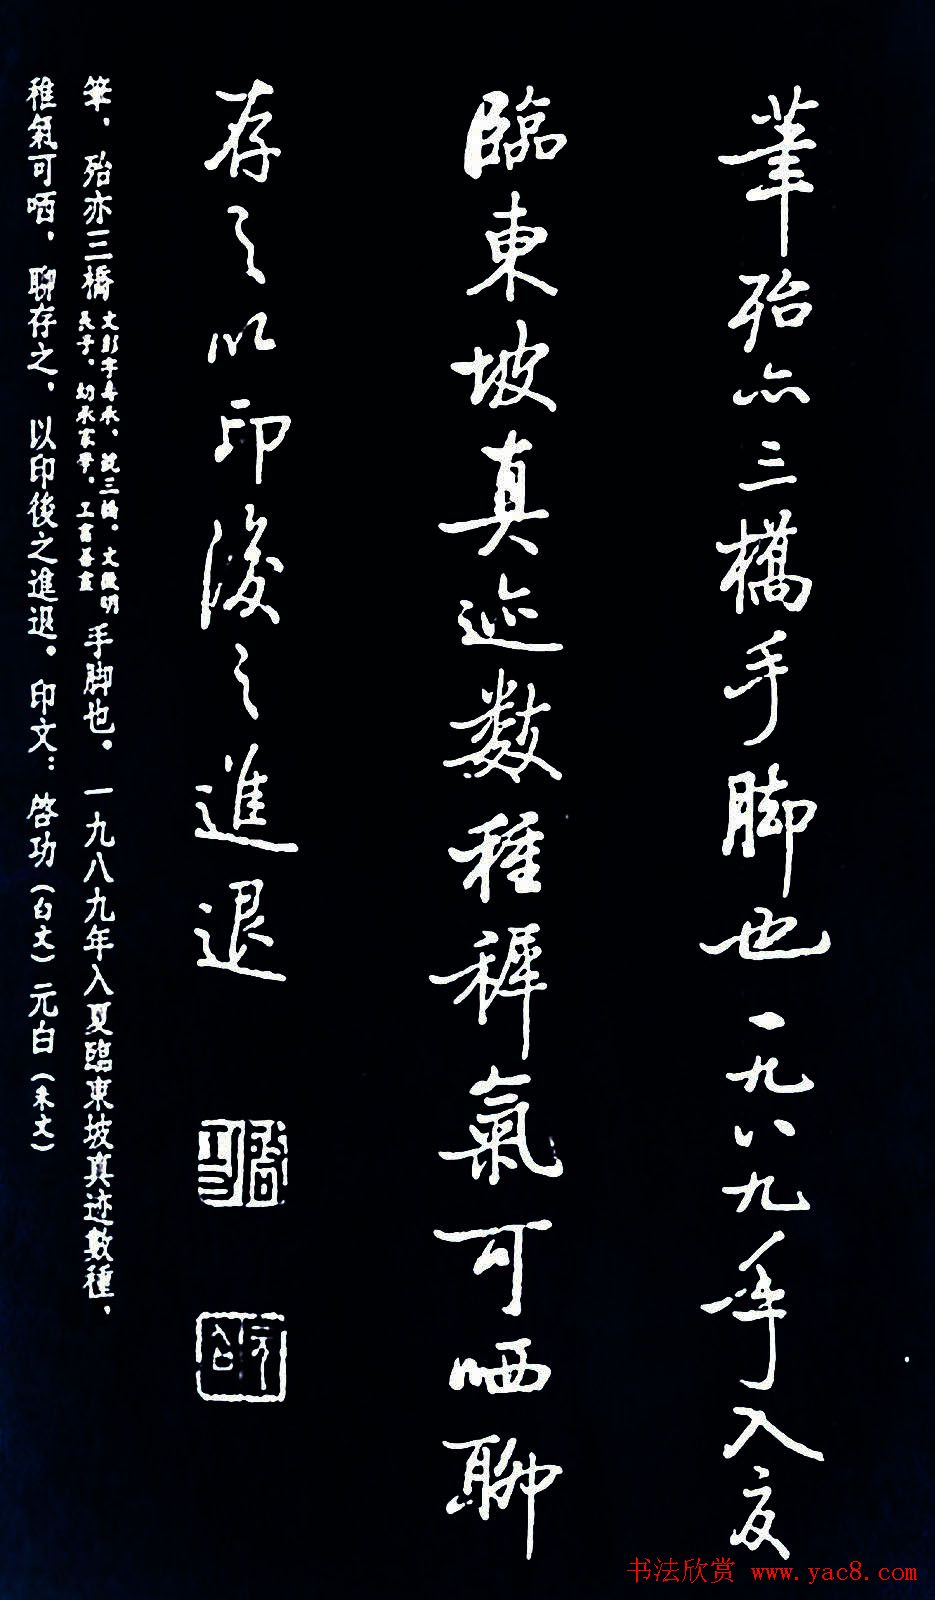 筆殆亦三橋手脚也一九八九年入夏
臨東坡真迹数種稺氣可哂聊
存之以印後之進退
啓功
元白
筆，殆亦三橋文彭字壽承，號三橋。文徵明長子，幼承家學，工書善畫手脚也。一九八九年入夏臨東坡真迹數種，
稚氣可哂，聊存之，以印後之進退。印文：啓功（白文）元白（朱文）
书法欣赏 www.yac8.com